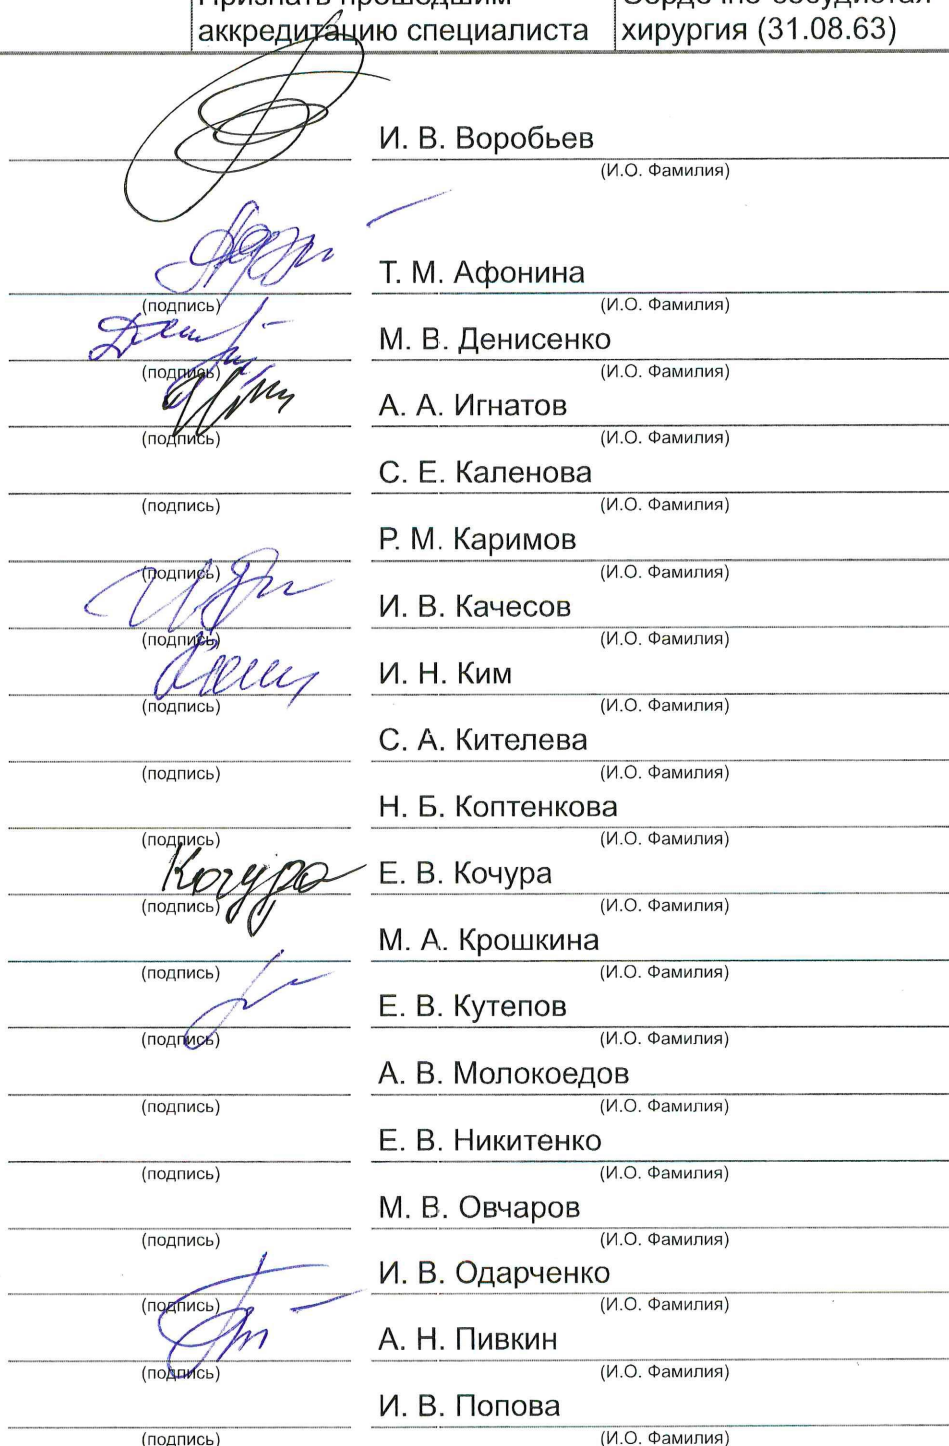 Признать прошедшим
аккредитацию специалиста
Сердечно-сосудистая
хирургия (31.08.63)
И. В. Воробьев
(И.О. Фамилия)
Т. М. Афонина
(подпись)
(И.О. Фамилия)
М. В. Денисенко
(подпись)
(И.О. Фамилия)
А. А. Игнатов
(подпись)
(И.О. Фамилия)
С. Е. Каленова
(подпись)
(И.О. Фамилия)
Р. М. Каримов
(подпись)
(И.О. Фамилия)
И. В. Качесов
(подпись)
(И.О. Фамилия)
И. Н. Ким
(подпись)
(И.О. Фамилия)
С. А. Кителева
(подпись)
(И.О. Фамилия)
Н. Б. Коптенкова
(подпись)
(И.О. Фамилия)
Кочура
Е. В. Кочура
(подпись)
(И.О. Фамилия)
М. А. Крошкина
(подпись)
(И.О. Фамилия)
Е. В. Кутепов
(подпись)
(И.О. Фамилия)
А. В. Молокоедов
(подпись)
(И.О. Фамилия)
Е. В. Никитенко
(подпись)
(И.О. Фамилия)
М. В. Овчаров
(подпись)
(И.О. Фамилия)
И. В. Одарченко
(подпись)
(И.О. Фамилия)
А. Н. Пивкин
(подпись)
(И.О. Фамилия)
И. В. Попова
(подпись)
(И.О. Фамилия)